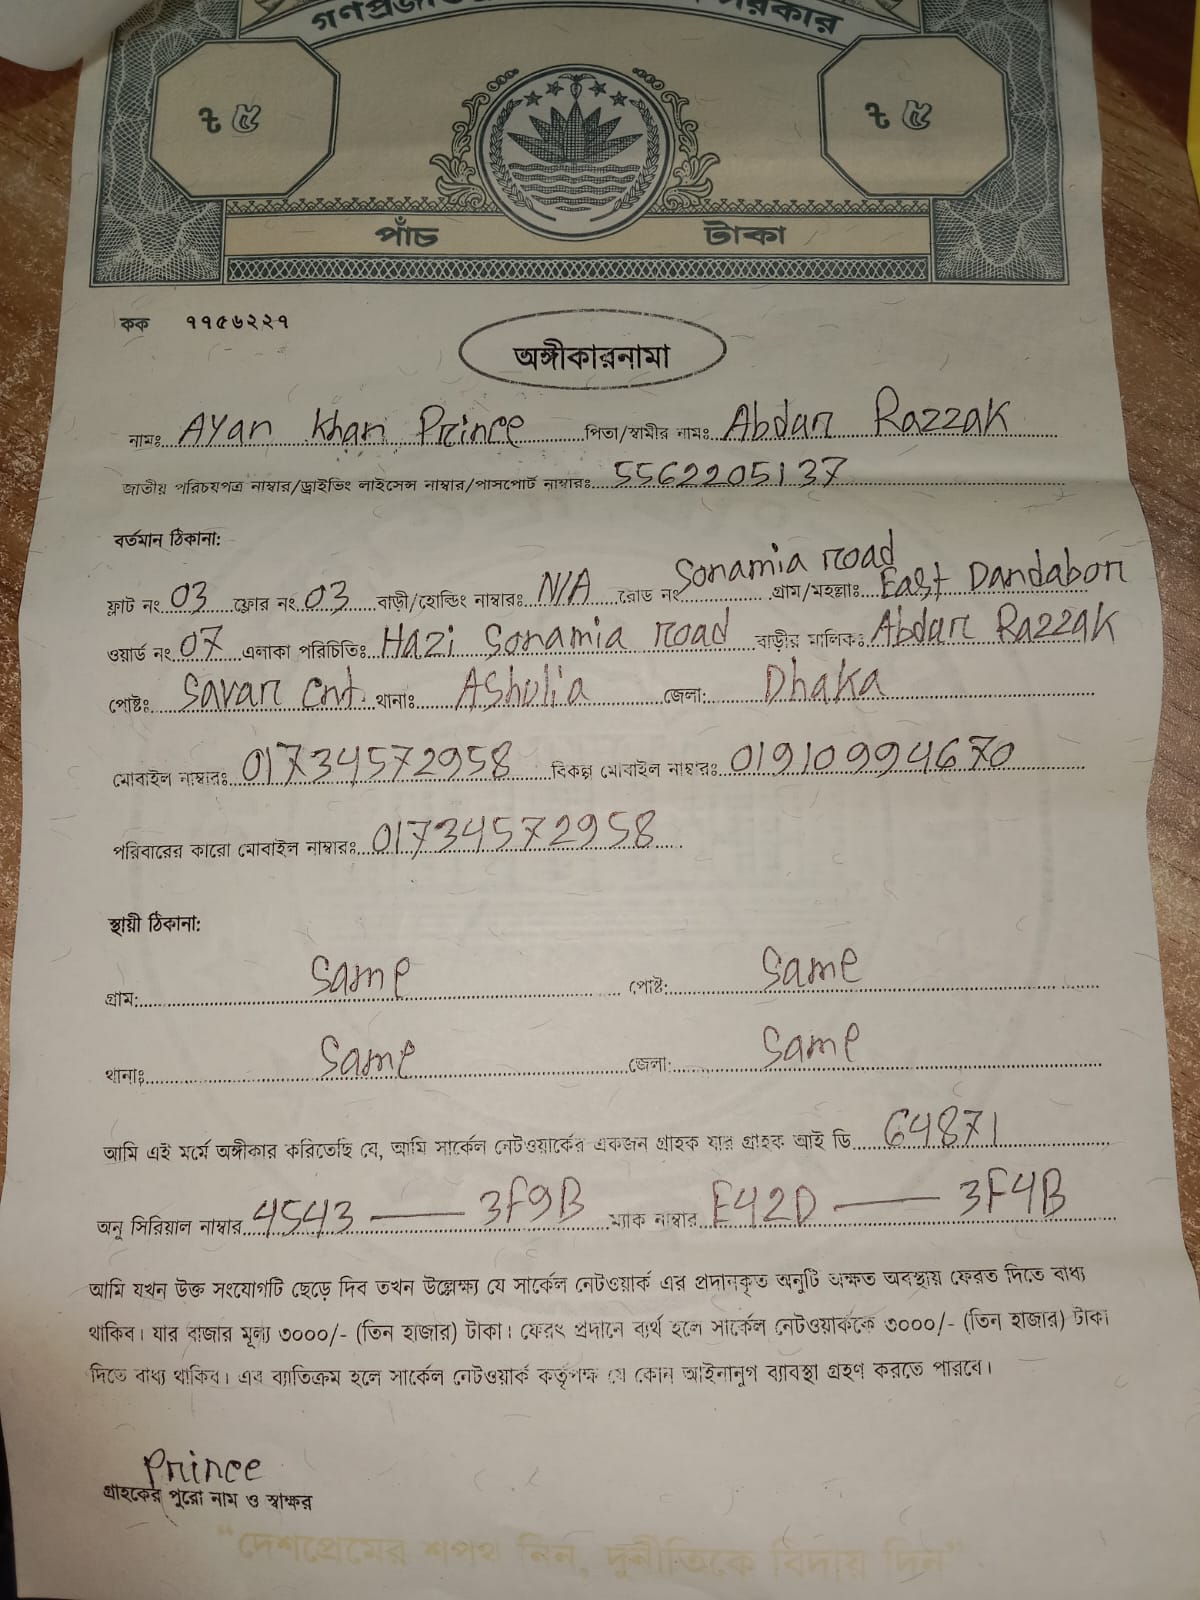 ৳ ৫ ৳ ৫
পাঁচ টাকা
কক ৭৭৫৬২২৭
অঙ্গীকারনামা
নামঃ Ayan Khan Prince পিতা/স্বামীর নামঃ Abdur Razzak
জাতীয় পরিচয়পত্র নাম্বার/ড্রাইভিং লাইসেন্স নাম্বার/পাসপোর্ট নাম্বারঃ 5562205137
বর্তমান ঠিকানা:
ফ্লাট নং 03 ফ্লোর নং 03 বাড়ী/হোল্ডিং নাম্বারঃ N/A রোড নং Sonamia road গ্রাম/মহল্লাঃ East Dandabor
ওয়ার্ড নং 07 এলাকা পরিচিতিঃ Hazi Sonamia road বাড়ীর মালিকঃ Abdur Razzak
পোষ্টঃ Savar Cnt. থানাঃ Ashulia জেলা: Dhaka
মোবাইল নাম্বারঃ 01734572958 বিকল্প মোবাইল নাম্বারঃ 01910994670
পরিবারের কারো মোবাইল নাম্বারঃ 01734572958
স্থায়ী ঠিকানা:
গ্রাম: Same পোষ্ট: Same
থানাঃ Same জেলা: Same
আমি এই মর্মে অঙ্গীকার করিতেছি যে, আমি সার্কেল নেটওয়ার্কের একজন গ্রাহক যার গ্রাহক আই ডি 64871
অনু সিরিয়াল নাম্বার 4543 — 3F9B ম্যাক নাম্বার E42D — 3F4B
আমি যখন উক্ত সংযোগটি ছেড়ে দিব তখন উল্লেক্ষ্য যে সার্কেল নেটওয়ার্ক এর প্রদানকৃত অনুটি অক্ষত অবস্থায় ফেরত দিতে বাধ্য
থাকিব। যার বাজার মূল্য ৩০০০/- (তিন হাজার) টাকা। ফেরৎ প্রদানে ব্যর্থ হলে সার্কেল নেটওয়ার্ককে ৩০০০/- (তিন হাজার) টাকা
দিতে বাধ্য থাকিব। এর ব্যতিক্রম হলে সার্কেল নেটওয়ার্ক কর্তৃপক্ষ যে কোন আইনানুগ ব্যাবস্থা গ্রহণ করতে পারবে।
Prince
গ্রাহকের পুরো নাম ও স্বাক্ষর
“দেশপ্রেমের শপথ নিন, দুর্নীতিকে বিদায় দিন”